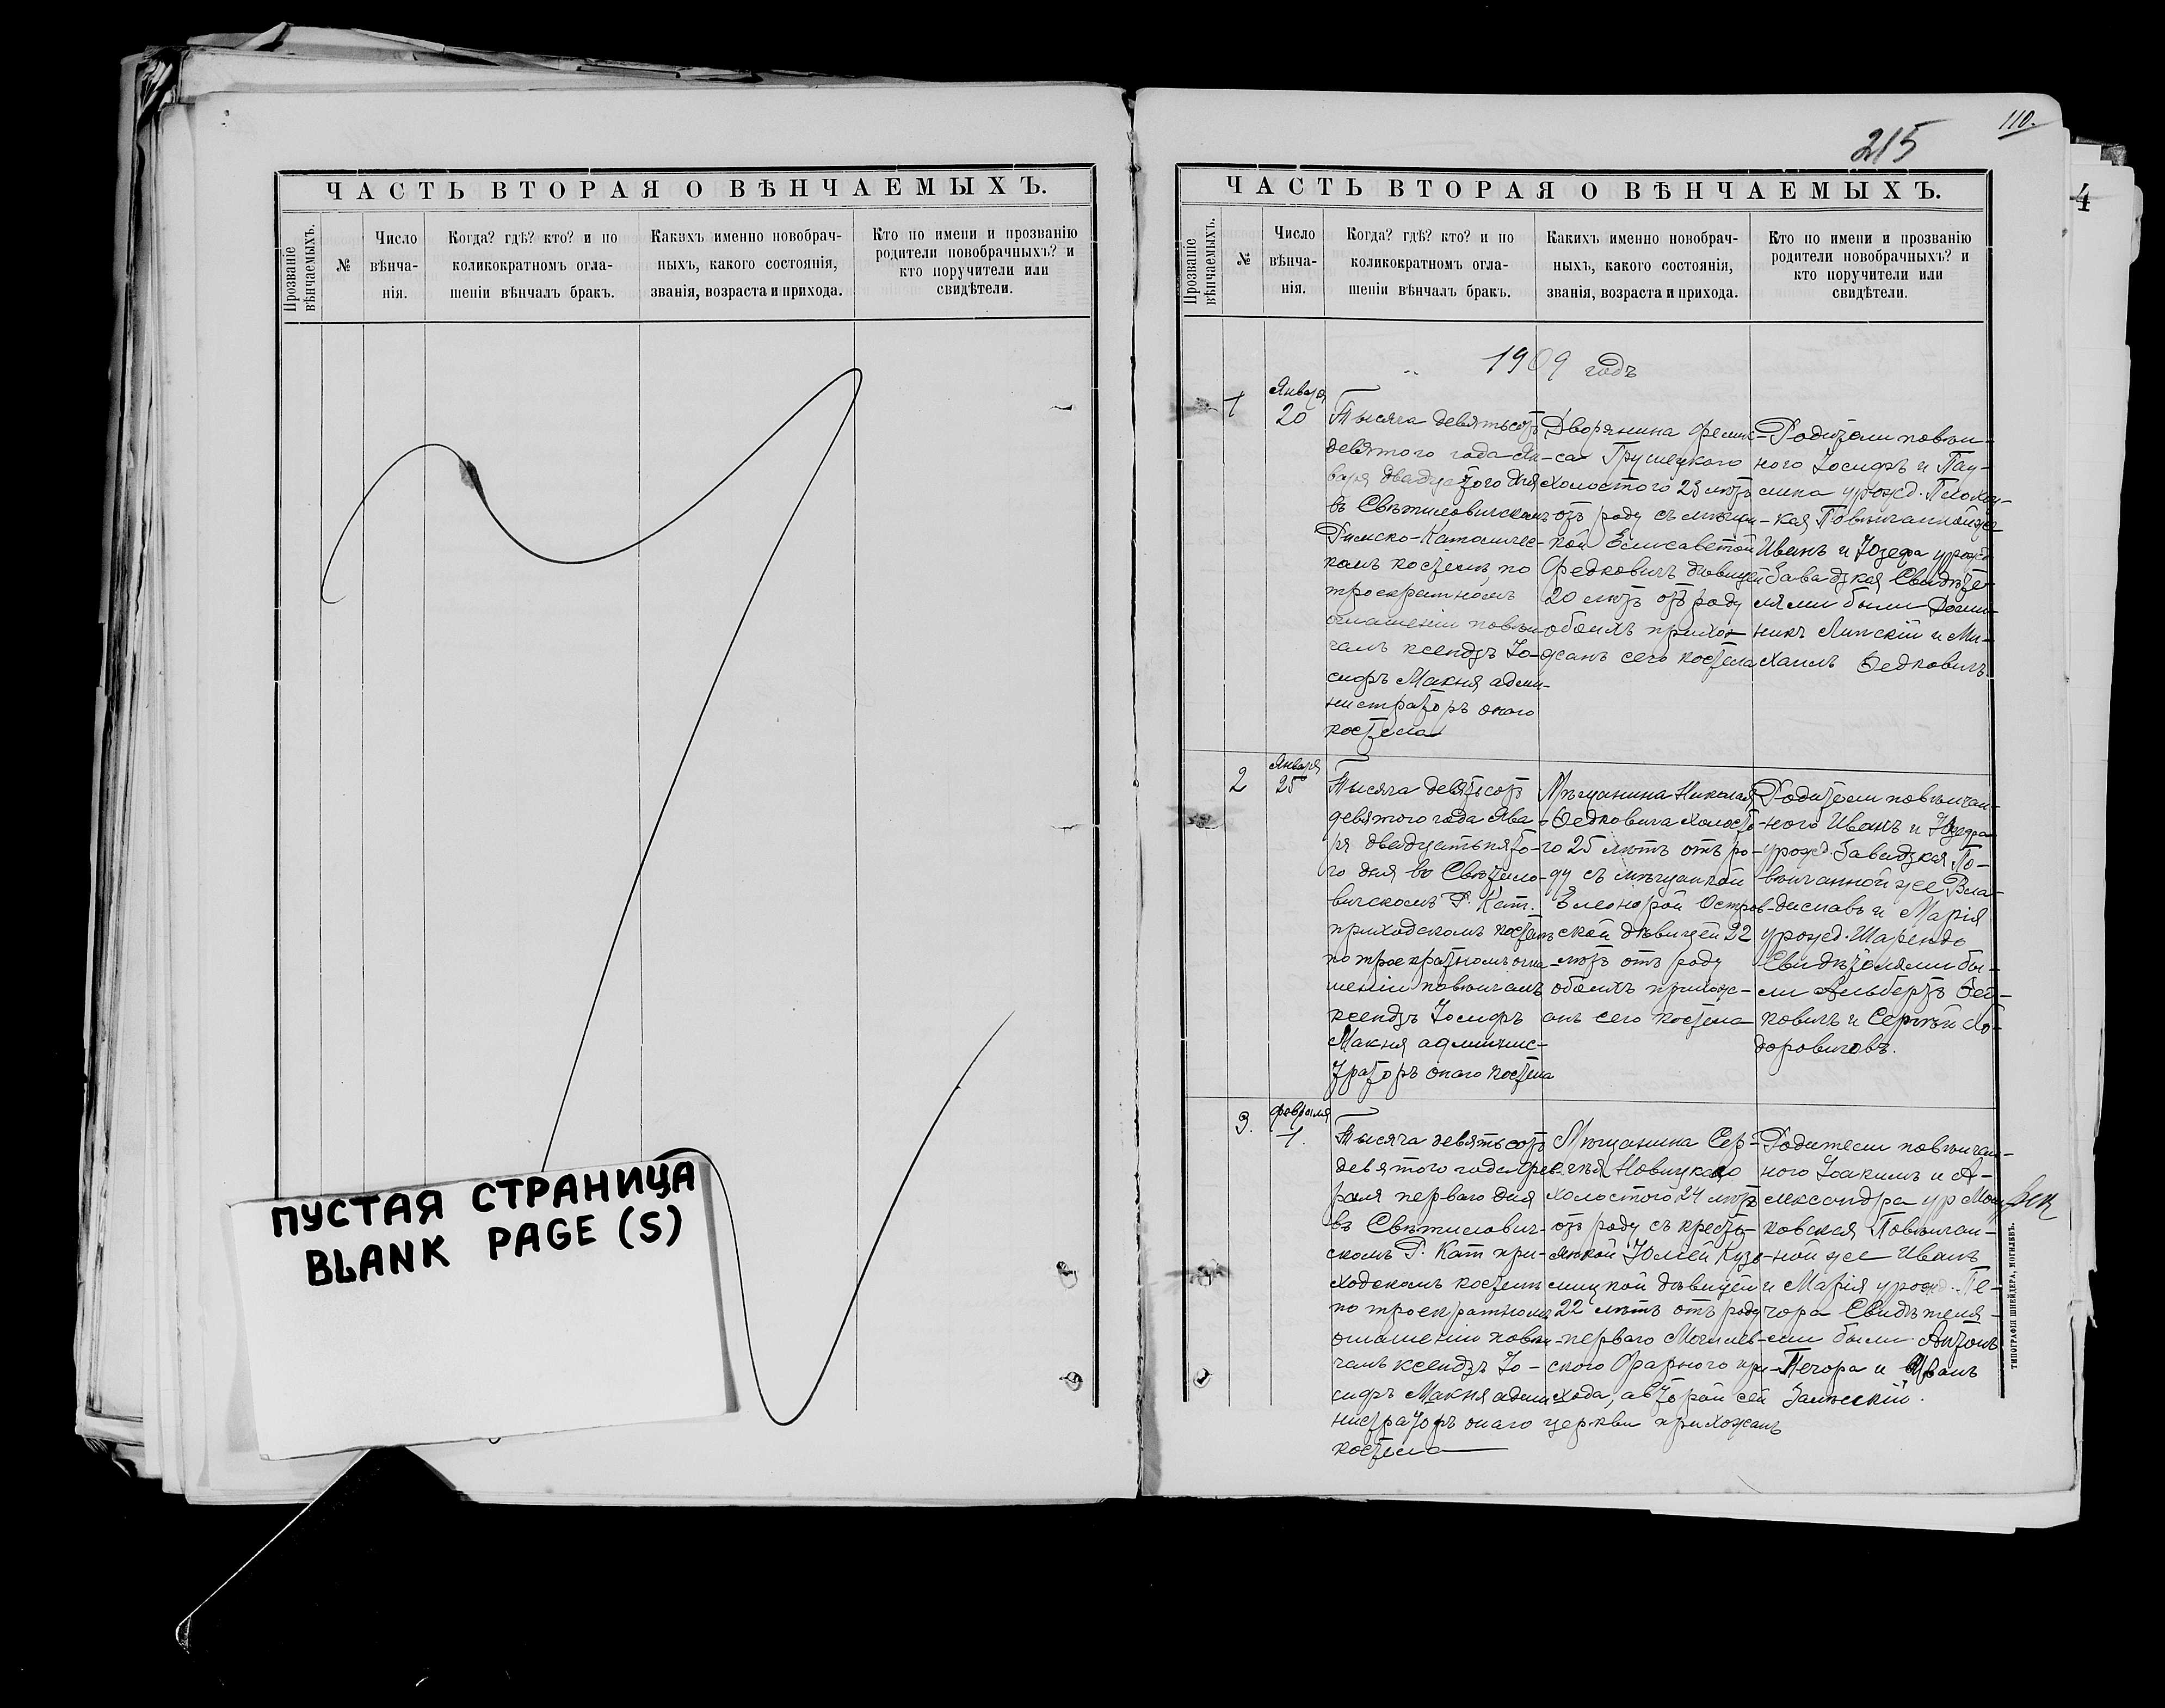 ЧАСТЬ ВТОРАЯ О ВѢНЧАЕМЫХЪ.
Прозваніе вѣнчаемыхъ.
№
Число
вѣнча-
нія.
Когда? гдѣ? кто? и по
коликократномъ огла-
шеніи вѣнчалъ бракъ.
Какихъ именно новобрач-
ныхъ, какого состоянія,
званія, возраста и прихода.
Кто по имени и прозванію
родители новобрачныхъ? и
кто поручители или
свидѣтели.
ПУСТАЯ СТРАНИЦА
BLANK PAGE (S)
110.
215
4
ЧАСТЬ ВТОРАЯ О ВѢНЧАЕМЫХЪ.
Прозваніе вѣнчаемыхъ.
№
Число
вѣнча-
нія.
Когда? гдѣ? кто? и по
коликократномъ огла-
шеніи вѣнчалъ бракъ.
Какихъ именно новобрач-
ныхъ, какого состоянія,
званія, возраста и прихода.
Кто по имени и прозванію
родители новобрачныхъ? и
кто поручители или
свидѣтели.
1909 годъ
1
Января
20
Тысяча девятьсотъ
девятого года Ян-
варя двадцатого дня
въ Свѣтиловичскомъ
Римско-Католичес-
комъ костелѣ, по
троекратномъ
оглашеніи повѣн-
чалъ ксендзъ Іо-
сифъ Макня адми-
нистраторъ онаго
костела
Дворянина Фелик-
са Грушецкого
холостого 23 лѣтъ
отъ роду съ мѣщан-
кой Елисаветой
Федковичъ дѣвицей
20 лѣтъ отъ роду
обоихъ прихо-
жанъ сего костела
Родители повѣн-
ного Іосифъ и Пау-
лина урожд.
Повѣнчанной же
Иванъ и Юзефа урожд
Завадзкая Свидѣте-
лями были Доми-
никъ Липскій и Ми-
хаилъ Федковичъ
2
Января
25
Тысяча девятьсотъ
девятого года Ява-
ря двадцатьпято-
го дня во Свѣтило-
вичскомъ Р. Кат.
приходскомъ костелѣ
по троекратномъ огла-
шеніи повѣнчалъ
ксендзъ Іосифъ
Макня админис-
траторъ онаго костела
Мѣщанина Николая
Федковича холосто-
го 25 лѣтъ отъ ро-
ду съ мѣщанкой
Елеонорой Остров-
ской дѣвицей 22
лѣтъ отъ роду
обоихъ прихож-
анъ сего костела
Родители повѣнчан-
ного Иванъ и Юзефа
урожд. Завадзкая По-
вѣнчанной же Вла-
диславъ и Марія
урожд. Шарендо
Свидѣтелями бы-
ли Альбертъ Фед-
ковичъ и Сергѣй
доровичовъ.
3.
Февраля
1.
Тысяча девятьсотъ
девятого года Фев-
раля перваго дня
въ Свѣтилович-
скомъ Р. Кат при-
ходскомъ костелѣ
по троекратномъ
оглашеніи повѣн-
чалъ ксендзъ Іо-
сифъ Макня адми-
нистраторъ онаго
костела
Мѣщанина Сер-
гѣя Новицкаго
холостого 24 лѣтъ
отъ роду съ кресть-
янкой Юліей Кузь-
мицкой дѣвицей
22 лѣтъ отъ роду
перваго Могилев-
ского Фарного при-
хода, а второй сей
церкви прихожанъ
Родители повѣнчан-
ного Іоакимъ и А-
лександра ур
ковская Повѣнчан-
ной же Иванъ
и Марія урожд. Пе-
чора Свидѣтеля-
ми были Антонъ
Печора и Иванъ
Залѣскій.
ТИПОГРАФІЯ ШНЕЙДЕРА, МОГИЛЕВЪ.